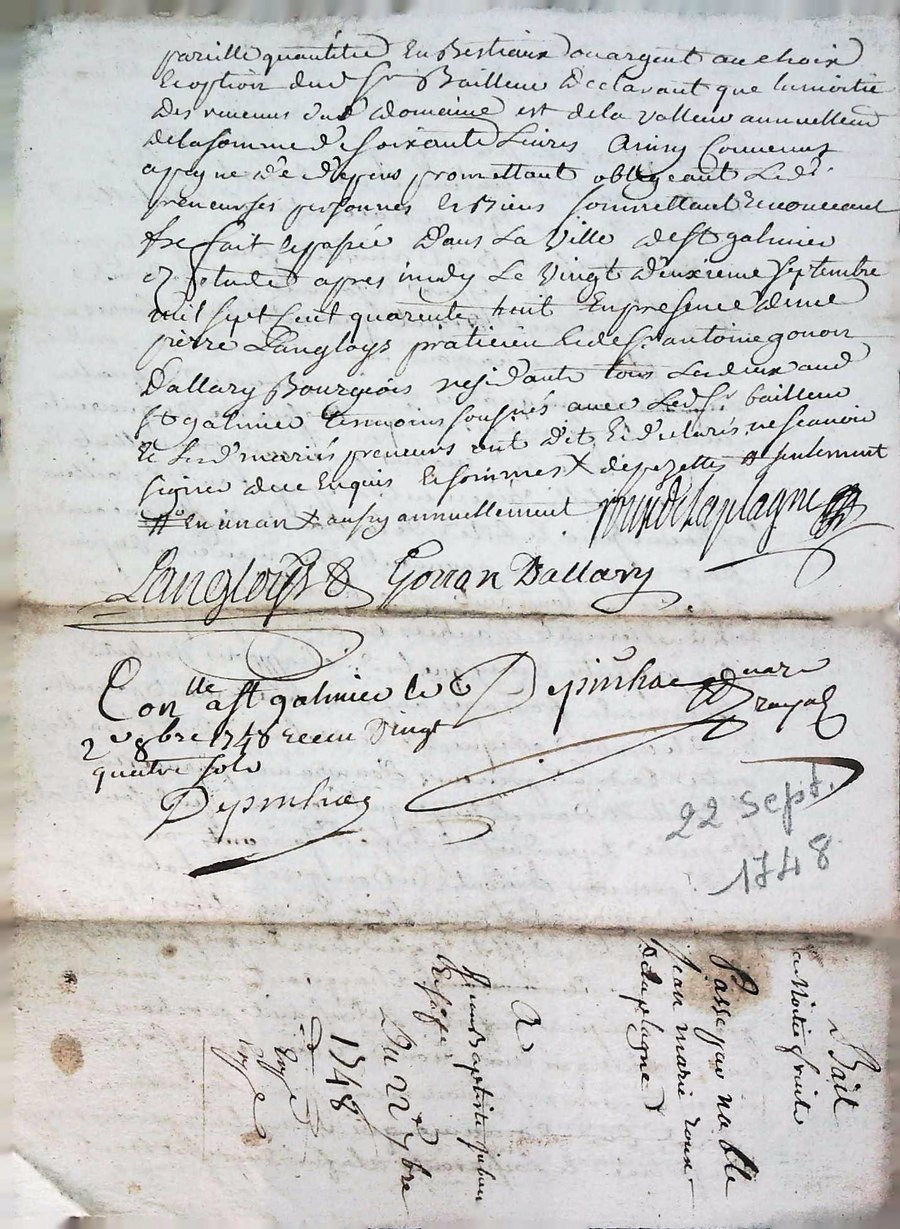 pareille quantité En Bestiaux ou argent au choix
Et option dud Sr Bailleur Declarant que la moitié
Des revenus dud domaine est de la valleur annuellem
de la somme de soixante Livres Ainsy Convenus
apeyne de depens promettant obligeant Led
preneur ses personnes Et Biens soumettant Renonceant
&c fait et passée Dans La Ville de St galmier
Etude apres midy Le Vingt deuxieme septembre
mil sept Cent quarente huit En presence de me
pierre Langloys praticien Et de Sr antoine gonon
Dallary Bourgeois residants tous Les deux aud
St galmier temoins sousnés avec Led Sr bailleur
Et Led mariés preneurs ont Dit Et declarés ne scavoir
signer de ce Enquis Et sommés seulement
annuellement roux de Laplagne
Langloys Gonon Dallary
Con lle a St galmier le
2 8bre 1748 Receu Vingt
quatre sols
royal
22 sept.
1748
Bail
a Moitié fruit
Passe par noble
Jean marie roux
delaplagne
A
Jean Baptiste
Du 22 7bre
1748